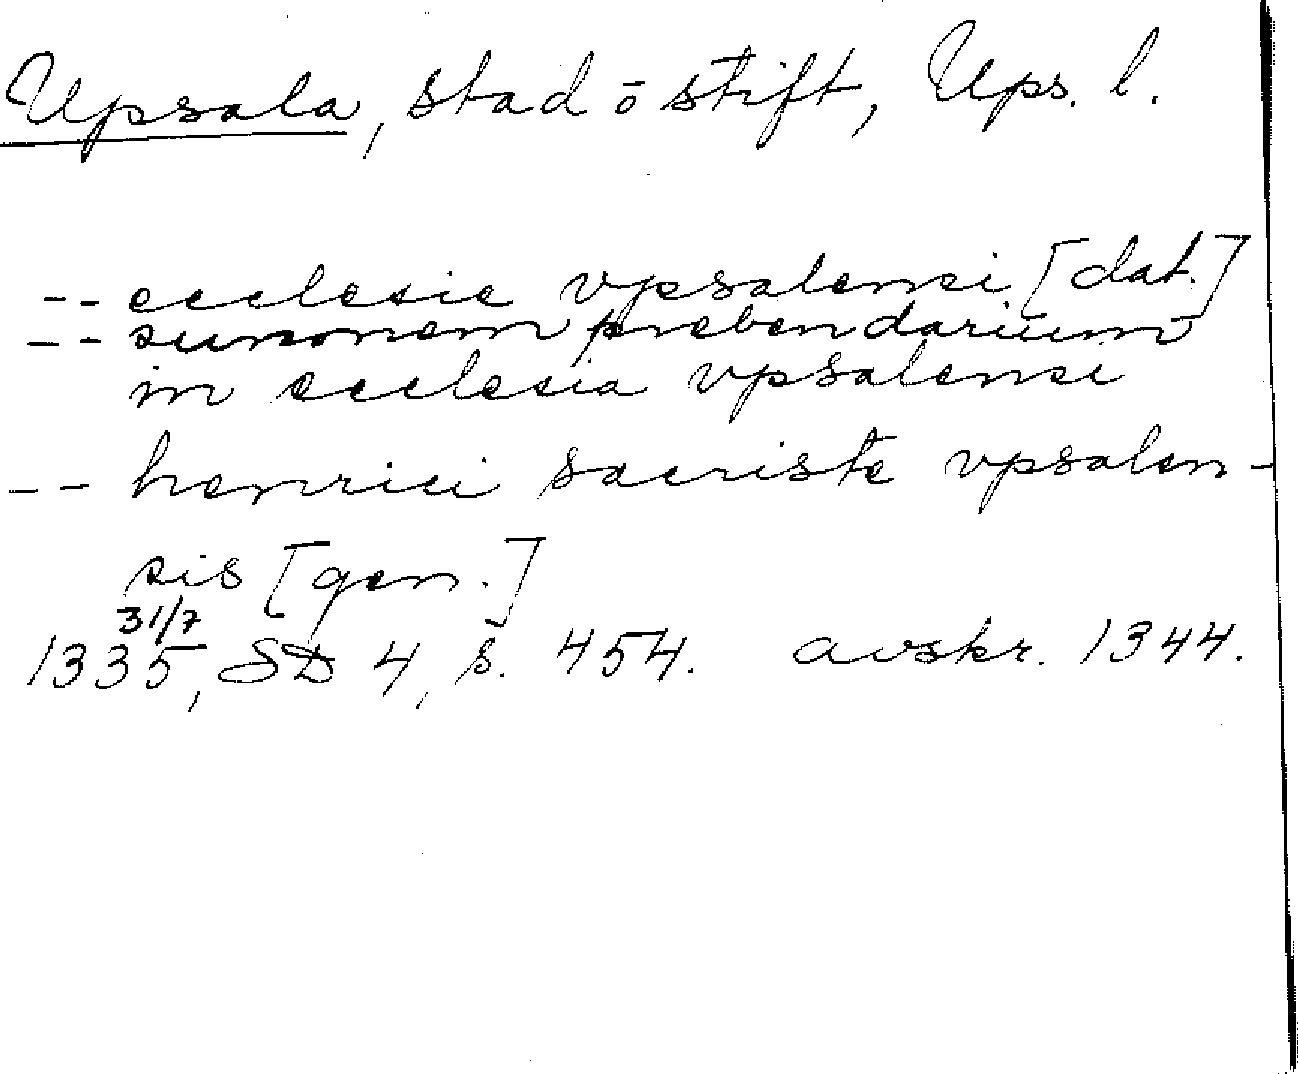 Upsala, stad o stift, Ups. l.
-- ecclesie vpsalensi [dat.]
-- sunonem prebendarium
in ecclesia vpsalensi
-- henrici sacriste vpsalen-
sis [gen.]
31/7
1335, SD 4, s. 454. avskr. 1344.